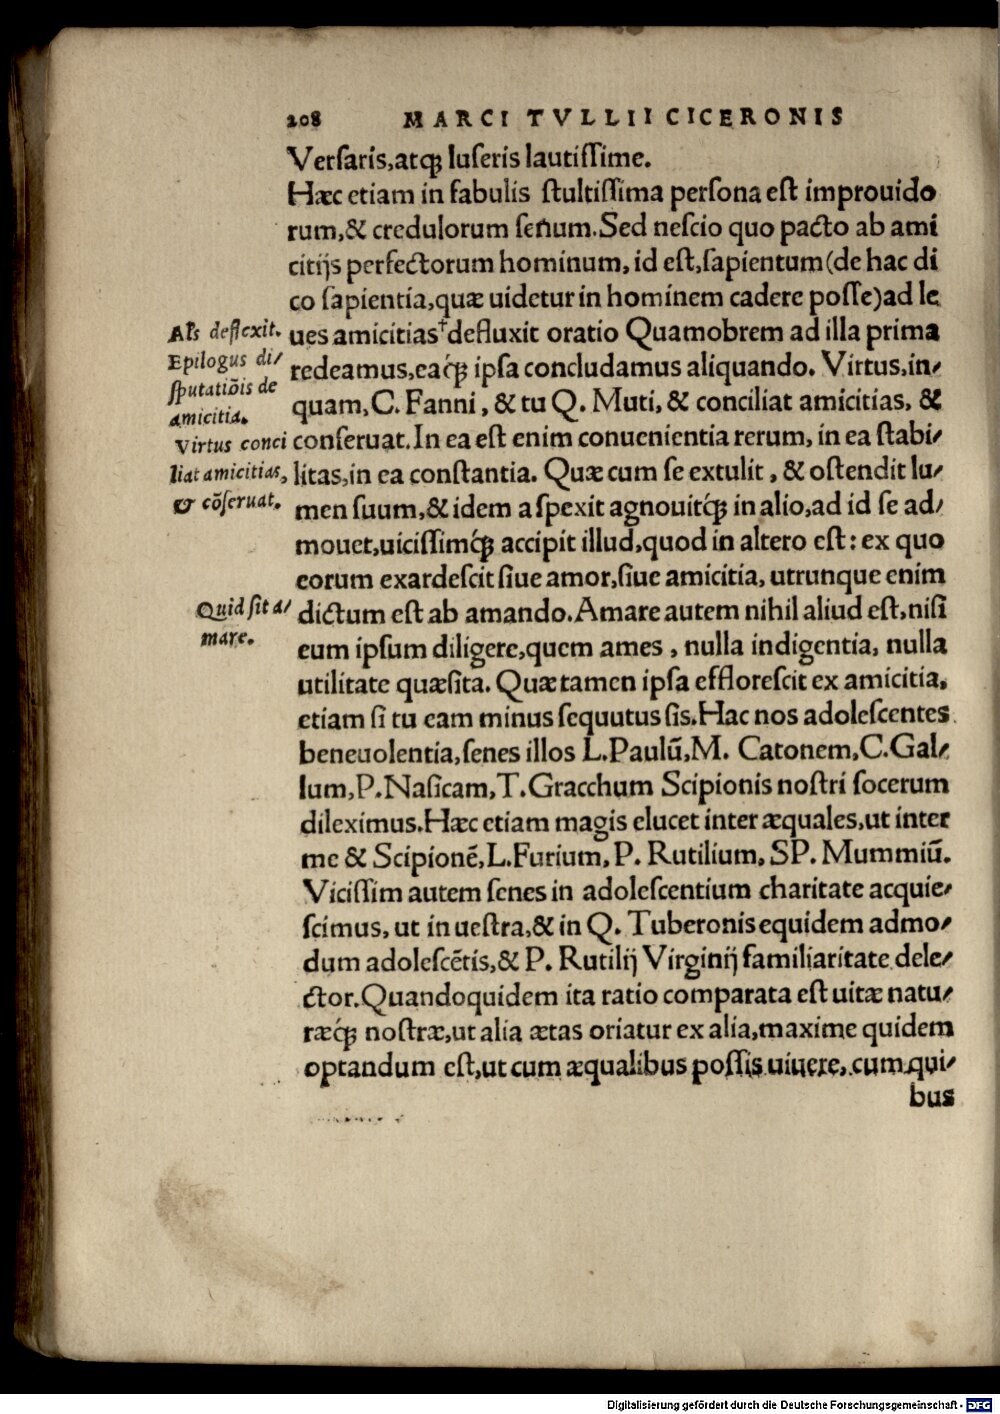 208 MARCI TVLLII CICERONIS
Versaris,atq; luseris lautissime.
Hæc etiam in fabulis stultissima persona est improuido
rum,& credulorum senum.Sed nescio quo pacto ab ami
citijs perfectorum hominum, id est,sapientum(de hac di
co sapientia,quæ uidetur in hominem cadere posse)ad le
ues amicitias†defluxit oratio Quamobrem ad illa prima
redeamus,eaq́; ipsa concludamus aliquando. Virtus,in-
quam, C. Fanni, & tu Q. Muti, & conciliat amicitias, &
conseruat.In ea est enim conuenientia rerum, in ea stabi-
litas,in ea constantia. Quæ cum se extulit, & ostendit lu-
men suum,& idem aspexit agnouitq́; in alio,ad id se ad-
mouet,uicissimq́; accipit illud,quod in altero est: ex quo
eorum exardescit siue amor,siue amicitia, utrunque enim
dictum est ab amando.Amare autem nihil aliud est,nisi
eum ipsum diligere,quem ames, nulla indigentia, nulla
utilitate quæsita. Quæ tamen ipsa efflorescit ex amicitia,
etiam si tu eam minus sequutus sis.Hac nos adolescentes
beneuolentia,senes illos L.Paulū,M. Catonem,C.Gal-
lum,P.Nasicam,T.Gracchum Scipionis nostri socerum
dileximus.Hæc etiam magis elucet inter æquales,ut inter
me & Scipionē,L.Furium, P. Rutilium, SP. Mummiū.
Vicissim autem senes in adolescentium charitate acquie-
scimus, ut in uestra,& in Q. Tuberonis equidem admo-
dum adolescētis,& P. Rutilij Virginij familiaritate dele-
ctor.Quandoquidem ita ratio comparata est uitæ natu-
ræq́; nostræ,ut alia ætas oriatur ex alia,maxime quidem
optandum est,ut cum æqualibus possis uiuere, cum qui-
bus
Al's deflexit.
Epilogus di-
sputatiōis de
amicitia.
Virtus conci
liat amicitias,
& cōseruat.
Quid sit a-
mare.
Digitalisierung gefördert durch die Deutsche Forschungsgemeinschaft - DFG